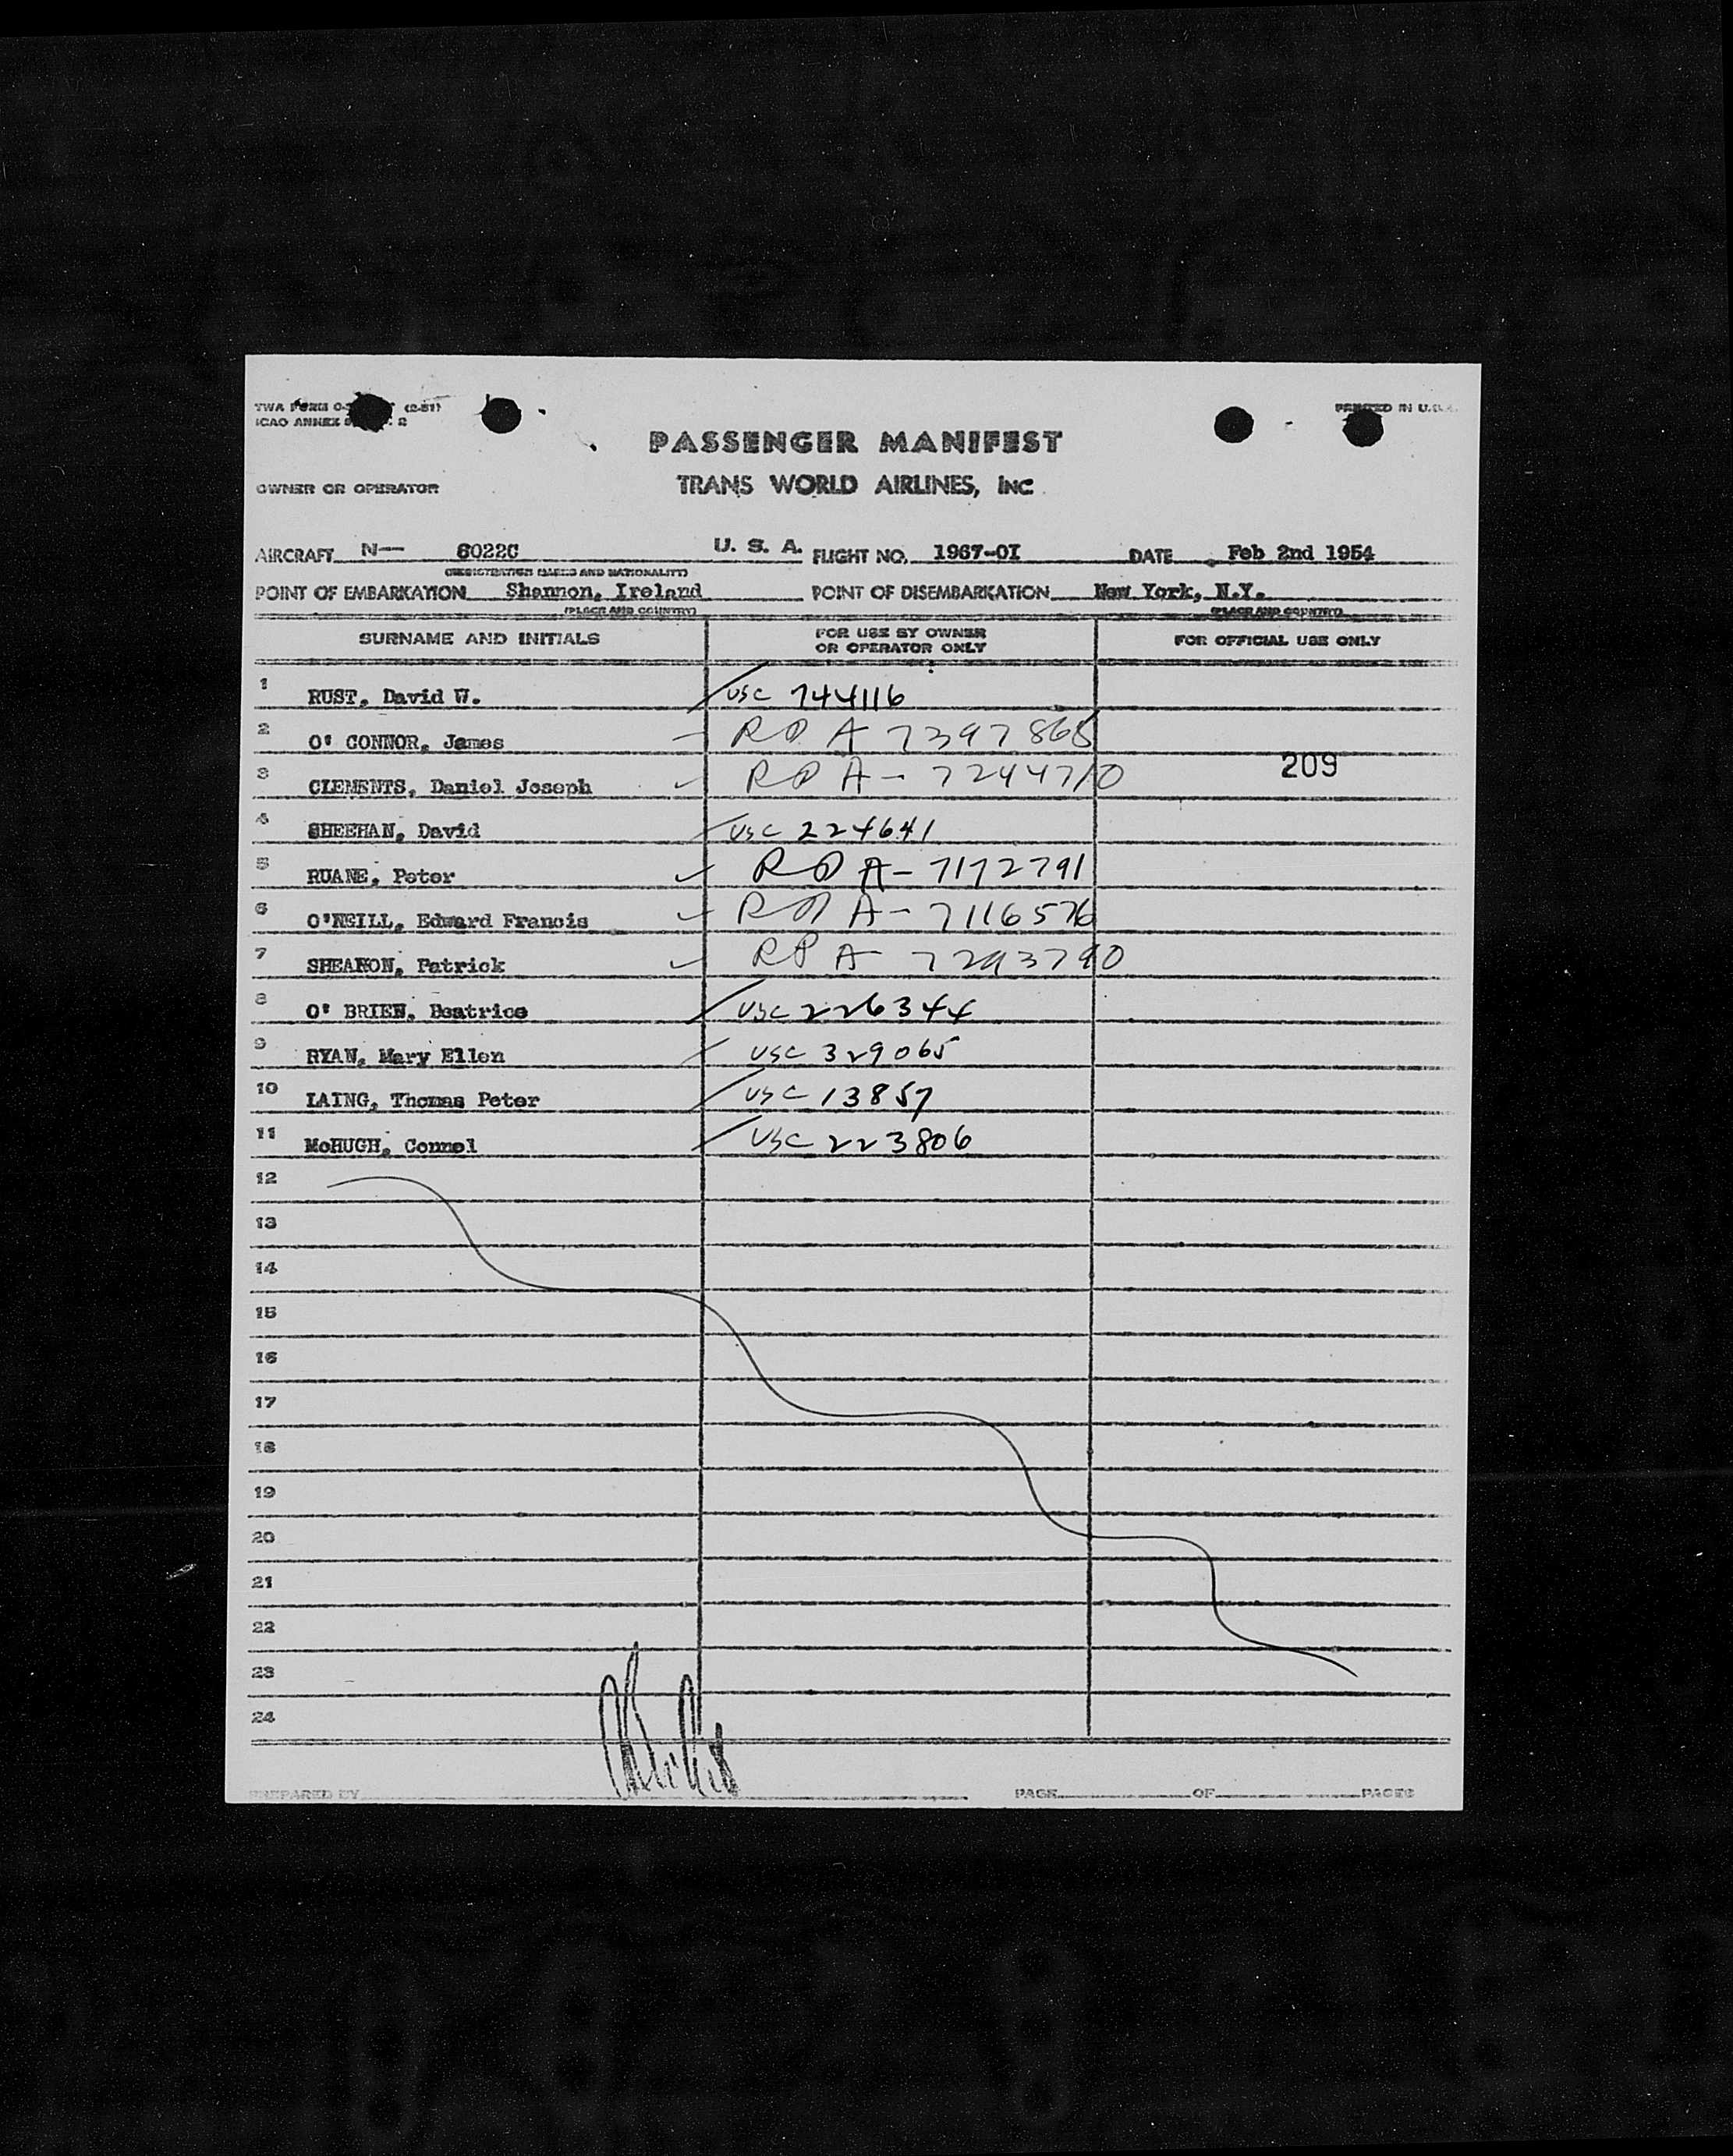 TWA FORM (2-51)
PRINTED IN U.S.A.
ICAO ANNEX
PASSENGER MANIFEST
OWNER OR OPERATOR
TRANS WORLD AIRLINES, INC
AIRCRAFT N— 6022C U. S. A. FLIGHT NO. 1967-01 DATE Feb 2nd 1954
(REGISTRATION MARKS AND NATIONALITY)
POINT OF EMBARKATION Shannon, Ireland POINT OF DISEMBARKATION New York, N.Y.
(PLACE AND COUNTRY) (PLACE AND COUNTRY)
SURNAME AND INITIALS FOR USE BY OWNER OR OPERATOR ONLY FOR OFFICIAL USE ONLY
1 RUST, David W. USC 744116
2 O' CONNOR, James A 7397865
209
3 CLEMENTS, Daniel Joseph A- 7244710
4 SHEEHAN, David USC 224641
5 RUANE, Peter A- 7172791
6 O'NEILL, Edward Francis A- 7116576
7 Patrick A 7293790
8 O' BRIEN, Beatrice USC 226344
9 RYAN, Mary Ellen USC 329065
10 LAING, Thomas Peter USC 13857
11 McHUGH, Connel USC 223806
12
13
14
15
16
17
18
19
20
21
22
23
24
PREPARED BY PAGE OF PAGES